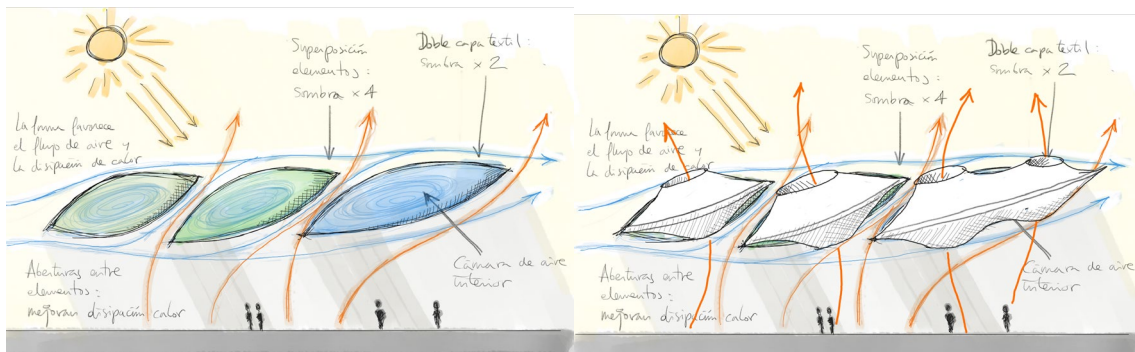 Superposición
elementos:
Sombra × 4
Doble capa textil:
Sombra × 2
La forma favorece
el flujo de aire y
la disipación de calor
Cámara de aire
interior
Aberturas entre
elementos:
mejoran disipación calor
Superposición
elementos:
Sombra × 4
Doble capa textil:
Sombra × 2
La forma favorece
el flujo de aire y
la disipación de calor
Cámara de aire
interior
Aberturas entre
elementos:
mejoran disipación calor